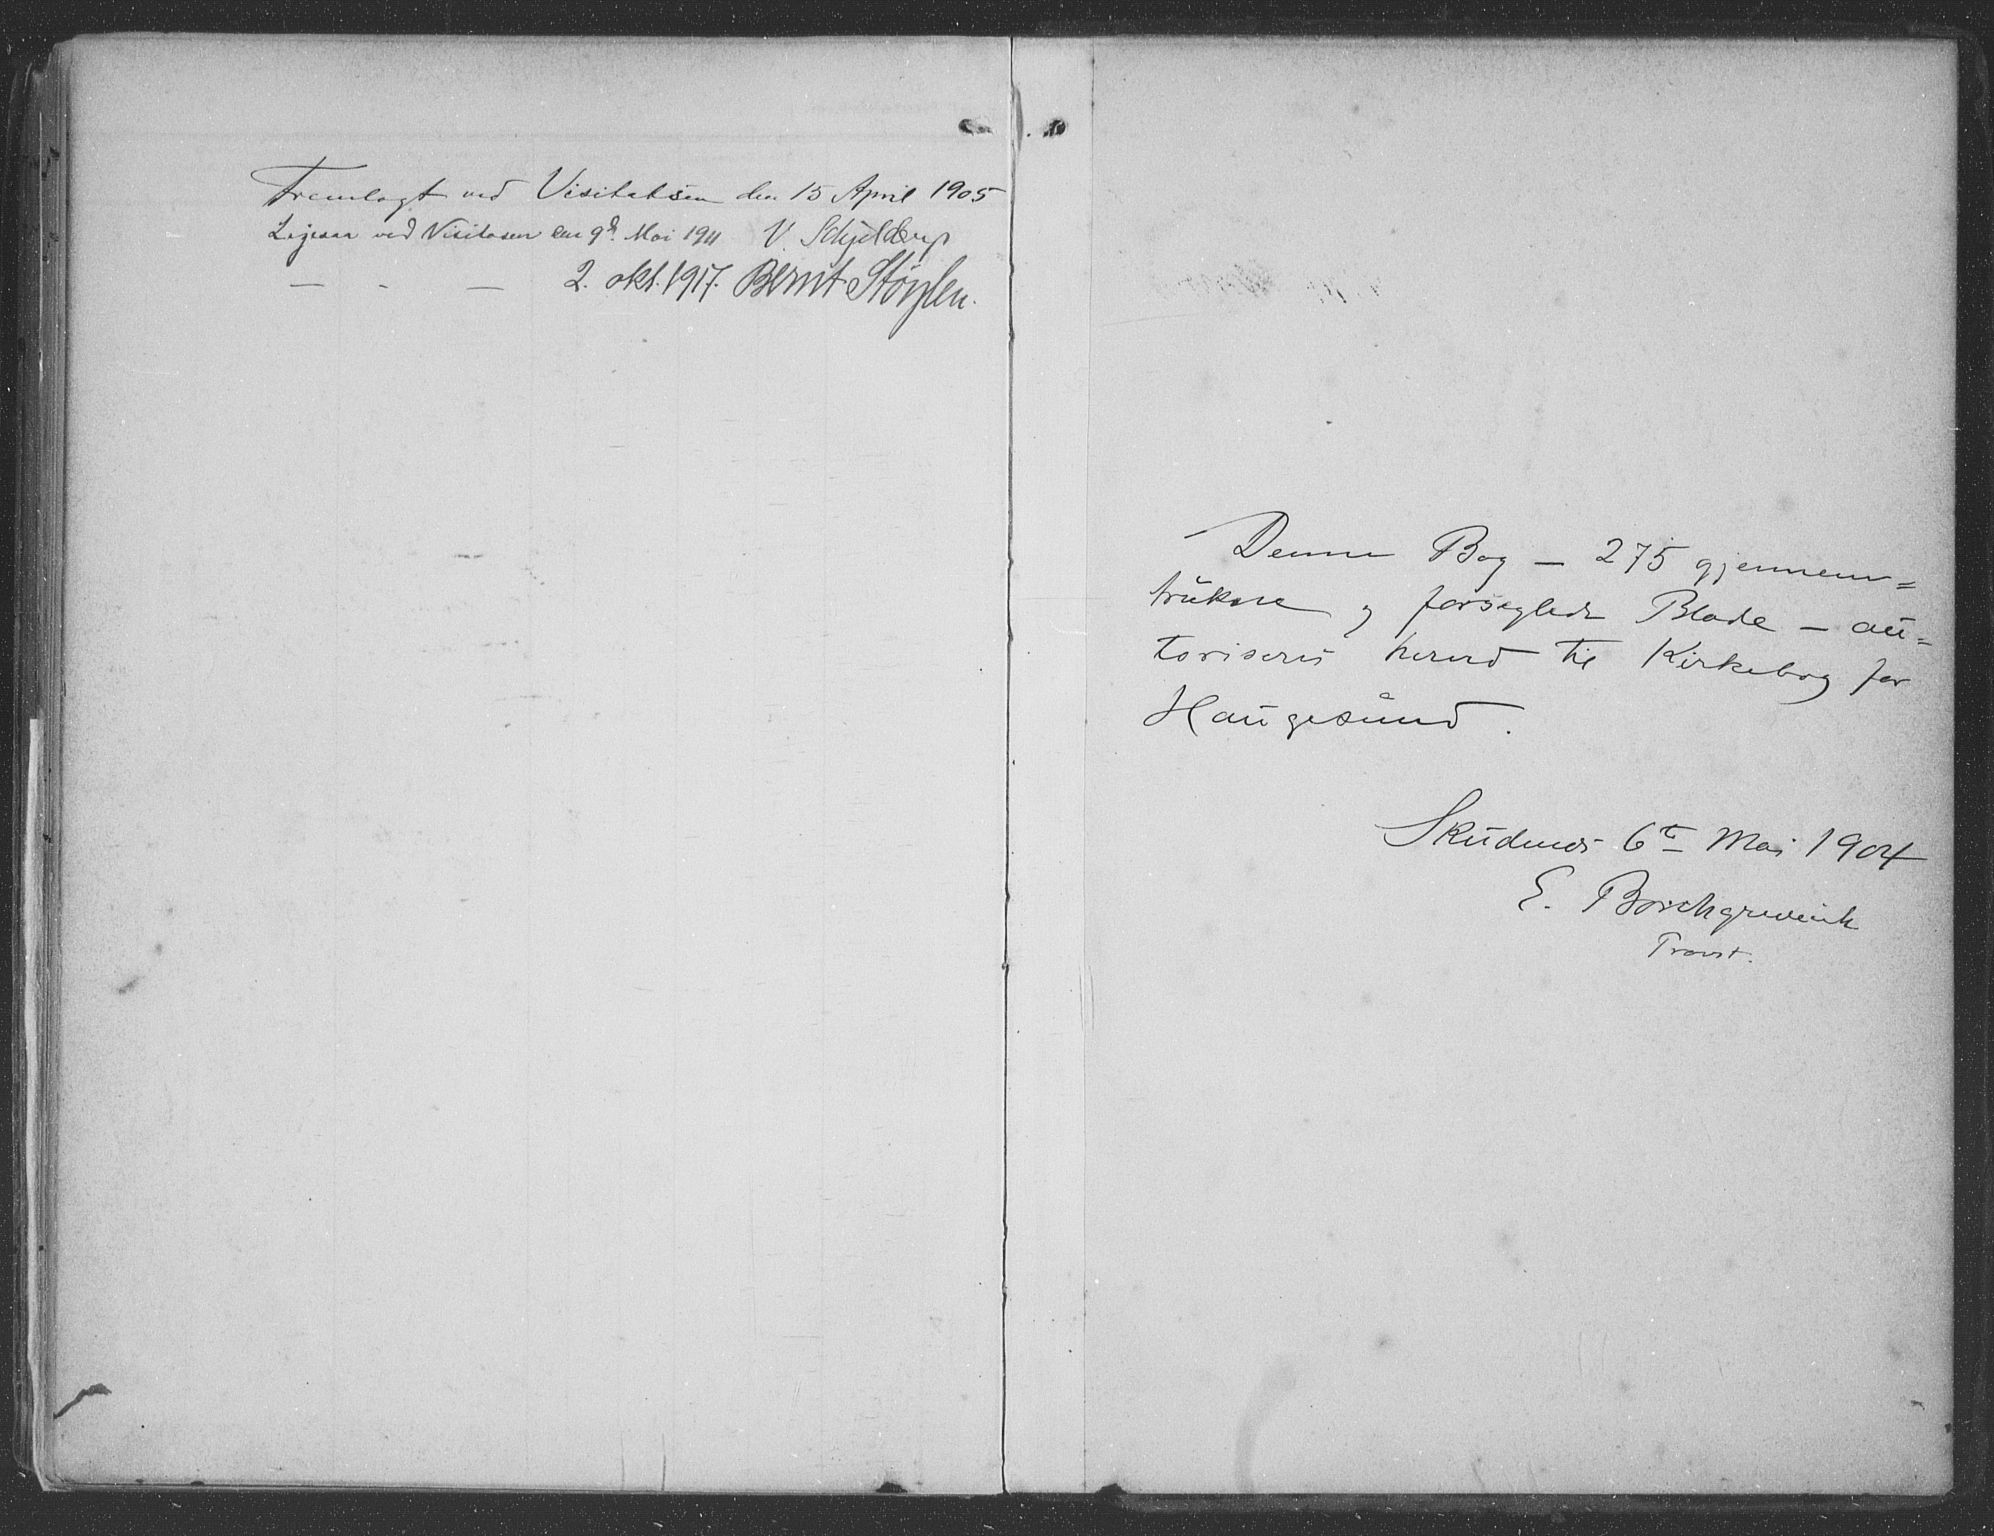 Fremlagt ved Visitatsen den 15 April 1905
Ligesaa ved Visitasen den 9d Mai 1911 V. Schjelderup
— - — 2. okt. 1917. Bernt Støylen.
Denne Bog – 275 gjennem=
trukne og forseglede Blade – au=
toriseres herved til Kirkebog for
Haugesund.
Skudenes 6te Mai 1904
E. Borchgrevink
Provst.